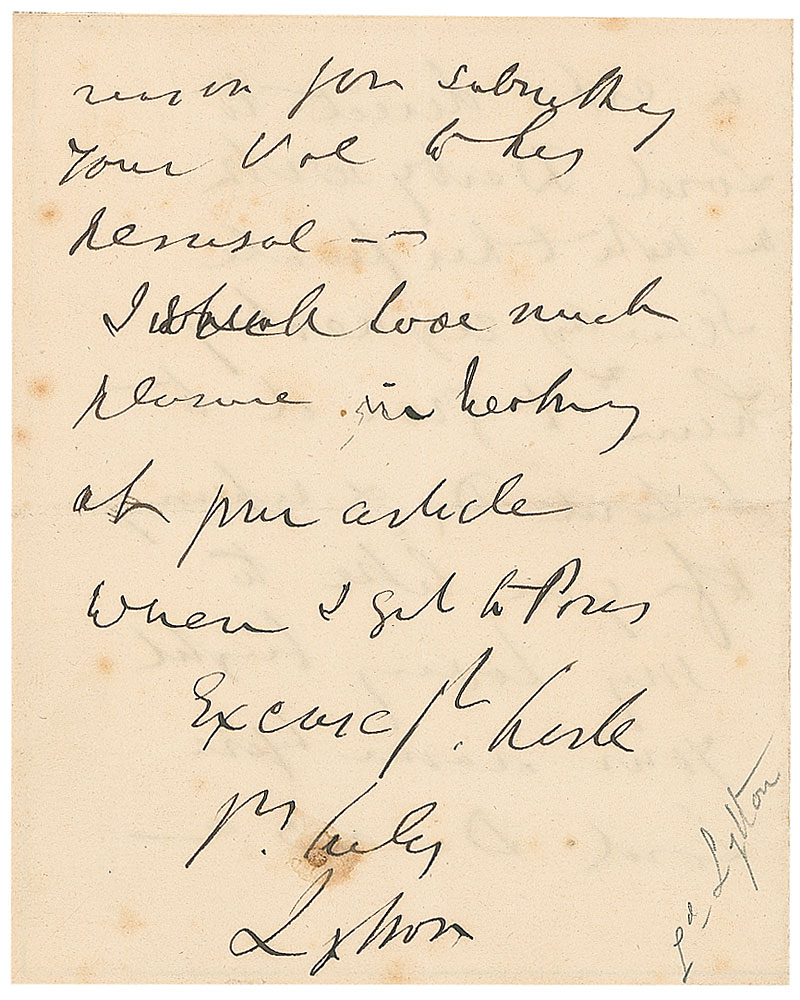 reason for submitting
your Vol to his
perusal — —
I shall have much
pleasure in looking
at your article
when I get to Paris
Excuse gt. haste
yrs. truly
Lytton
Ld Lytton